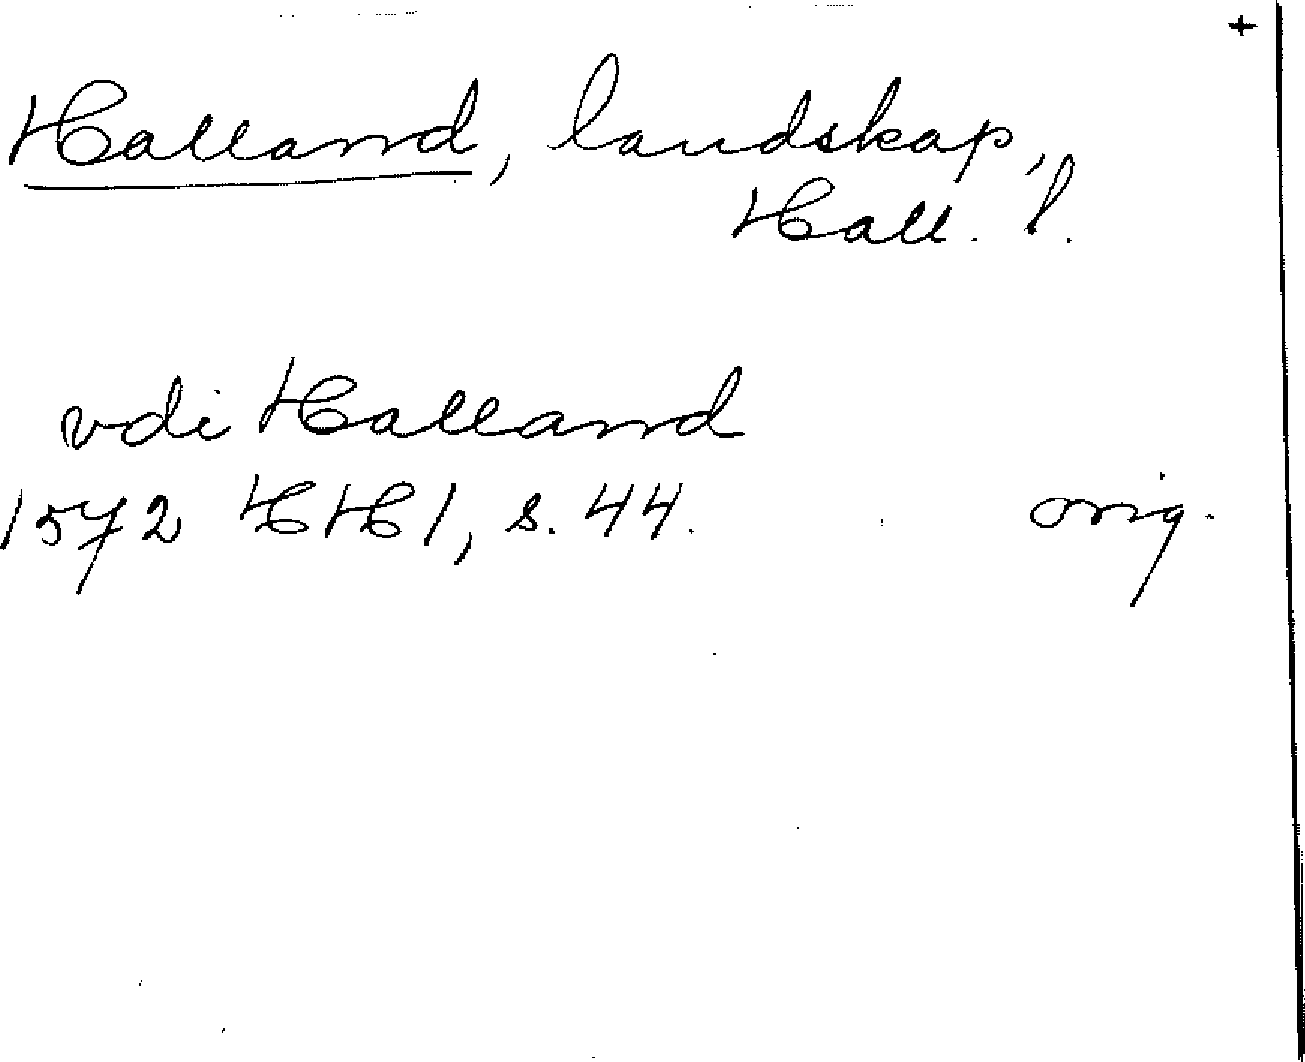 +
Halland, landskap,
Hall. l.
vdi Halland
1572 HH1, s. 44. orig.